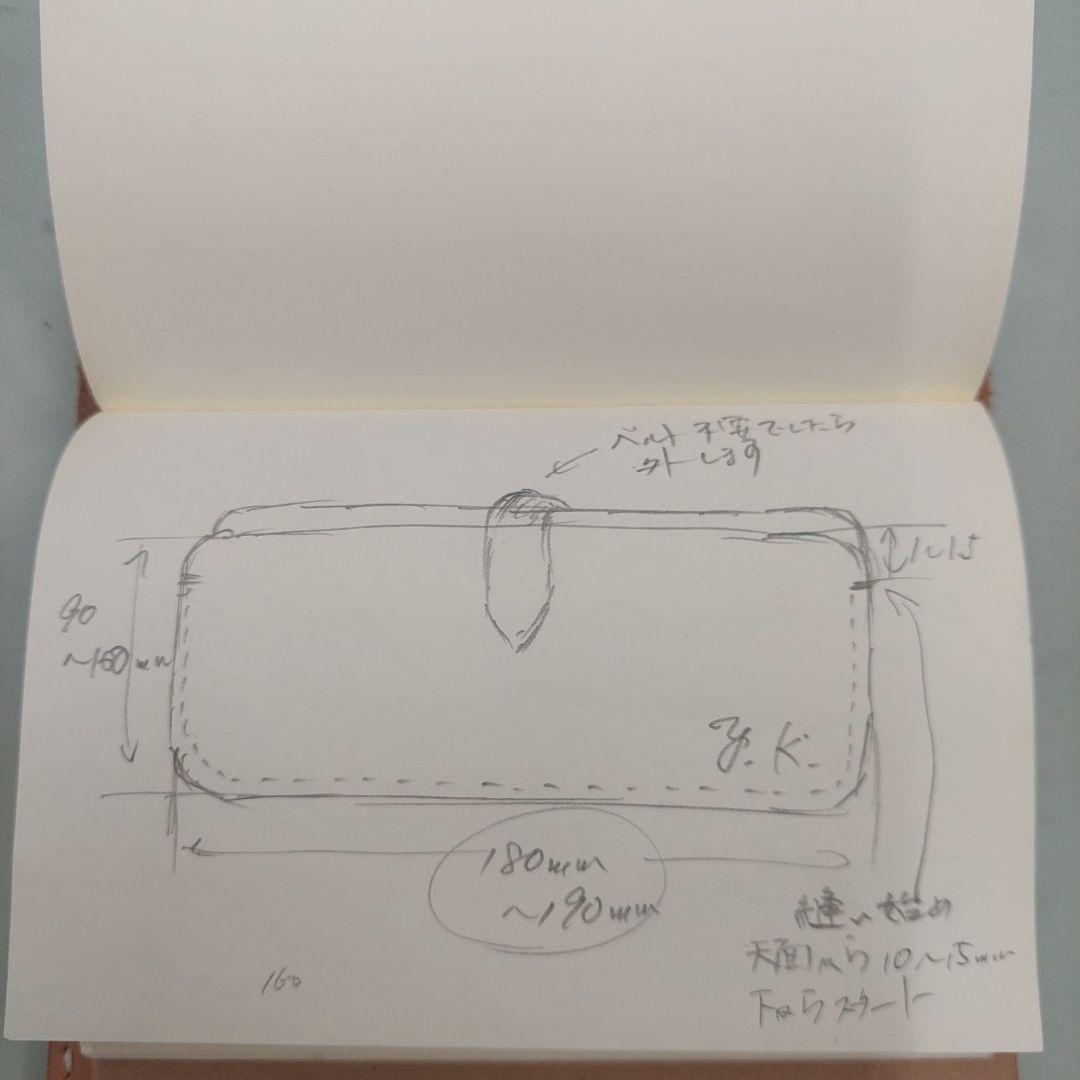 ベルト不要でしたら
外します
1~15
90
~100mm
Y.K.
180mm
~190mm
縫い始め
天面から10~15mm
下からスタート
160